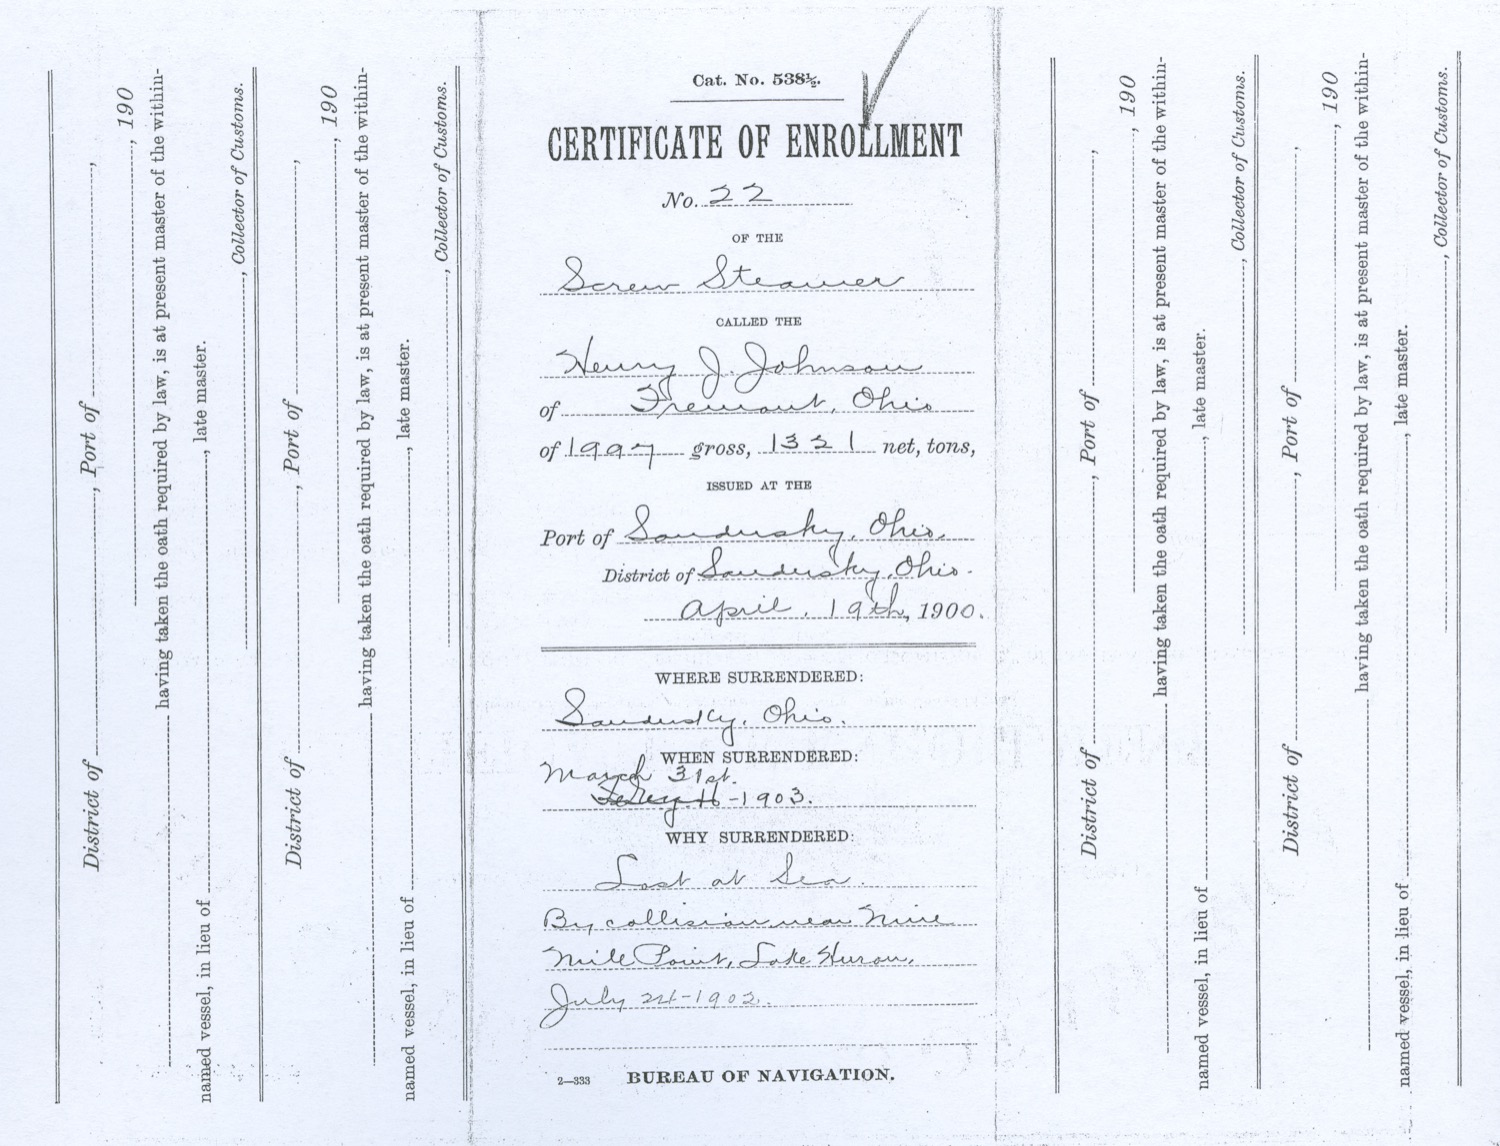 District of , Port of ,
, 190
having taken the oath required by law, is at present master of the within-
named vessel, in lieu of , late master.
, Collector of Customs.
District of , Port of ,
, 190
having taken the oath required by law, is at present master of the within-
named vessel, in lieu of , late master.
, Collector of Customs.
Cat. No. 538½.
CERTIFICATE OF ENROLLMENT
No. 22
OF THE
Screw Steamer
CALLED THE
Henry J. Johnson
of Fremont, Ohio
of 1997 gross, 1321 net, tons,
ISSUED AT THE
Port of Sandusky, Ohio.
District of Sandusky, Ohio.
April. 19th, 1900.
WHERE SURRENDERED:
Sandusky, Ohio.
WHEN SURRENDERED:
March 31st.
-1903.
WHY SURRENDERED:
Lost at Sea.
By collision near Nine
Mile Point, Lake Huron,
July 24-1902.
2—333 BUREAU OF NAVIGATION.
District of , Port of ,
, 190
having taken the oath required by law, is at present master of the within-
named vessel, in lieu of , late master.
, Collector of Customs.
District of , Port of ,
, 190
having taken the oath required by law, is at present master of the within-
named vessel, in lieu of , late master.
, Collector of Customs.